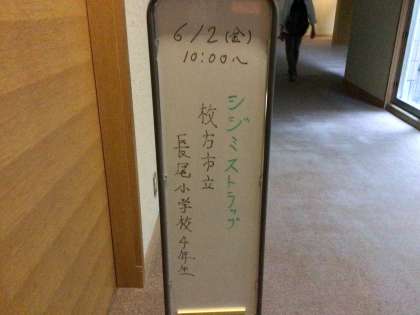 6/2(金)
10:00〜
シジミストラップ
枚方市立
長尾小学校4年生